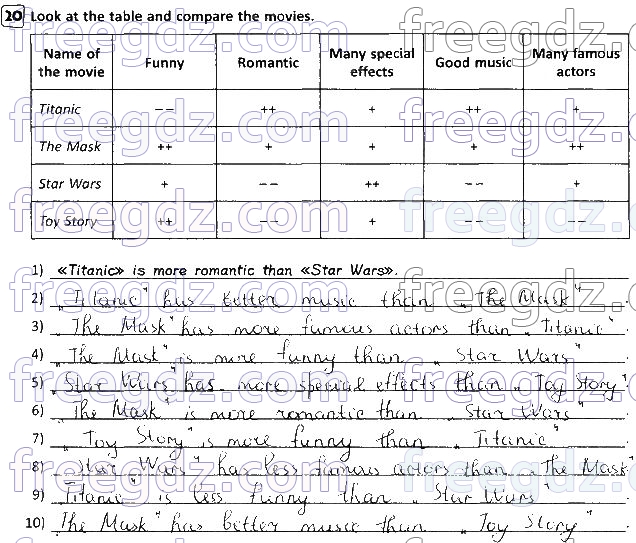 freegdz.com freegdz.com
20 Look at the table and compare the movies.
Name of the movie Funny Romantic Many special effects Good music Many famous actors
Titanic -- ++ + ++ +
The Mask ++ + + + ++
Star Wars + -- ++ -- +
Toy Story ++ -- + -- --
1) «Titanic» is more romantic than «Star Wars».
2) „Titanic" has better music than „The Mask".
3) „The Mask" has more famous actors than „Titanic".
4) „The Mask" is more funny than „Star Wars".
5) „Star Wars" has more special effects than „Toy Story".
6) „The Mask" is more romantic than „Star Wars".
7) „Toy Story" is more funny than „Titanic".
8) „Star Wars" has less famous actors than „The Mask".
9) „Titanic" is less funny than „Star Wars".
10) „The Mask" has better music than „Toy Story".